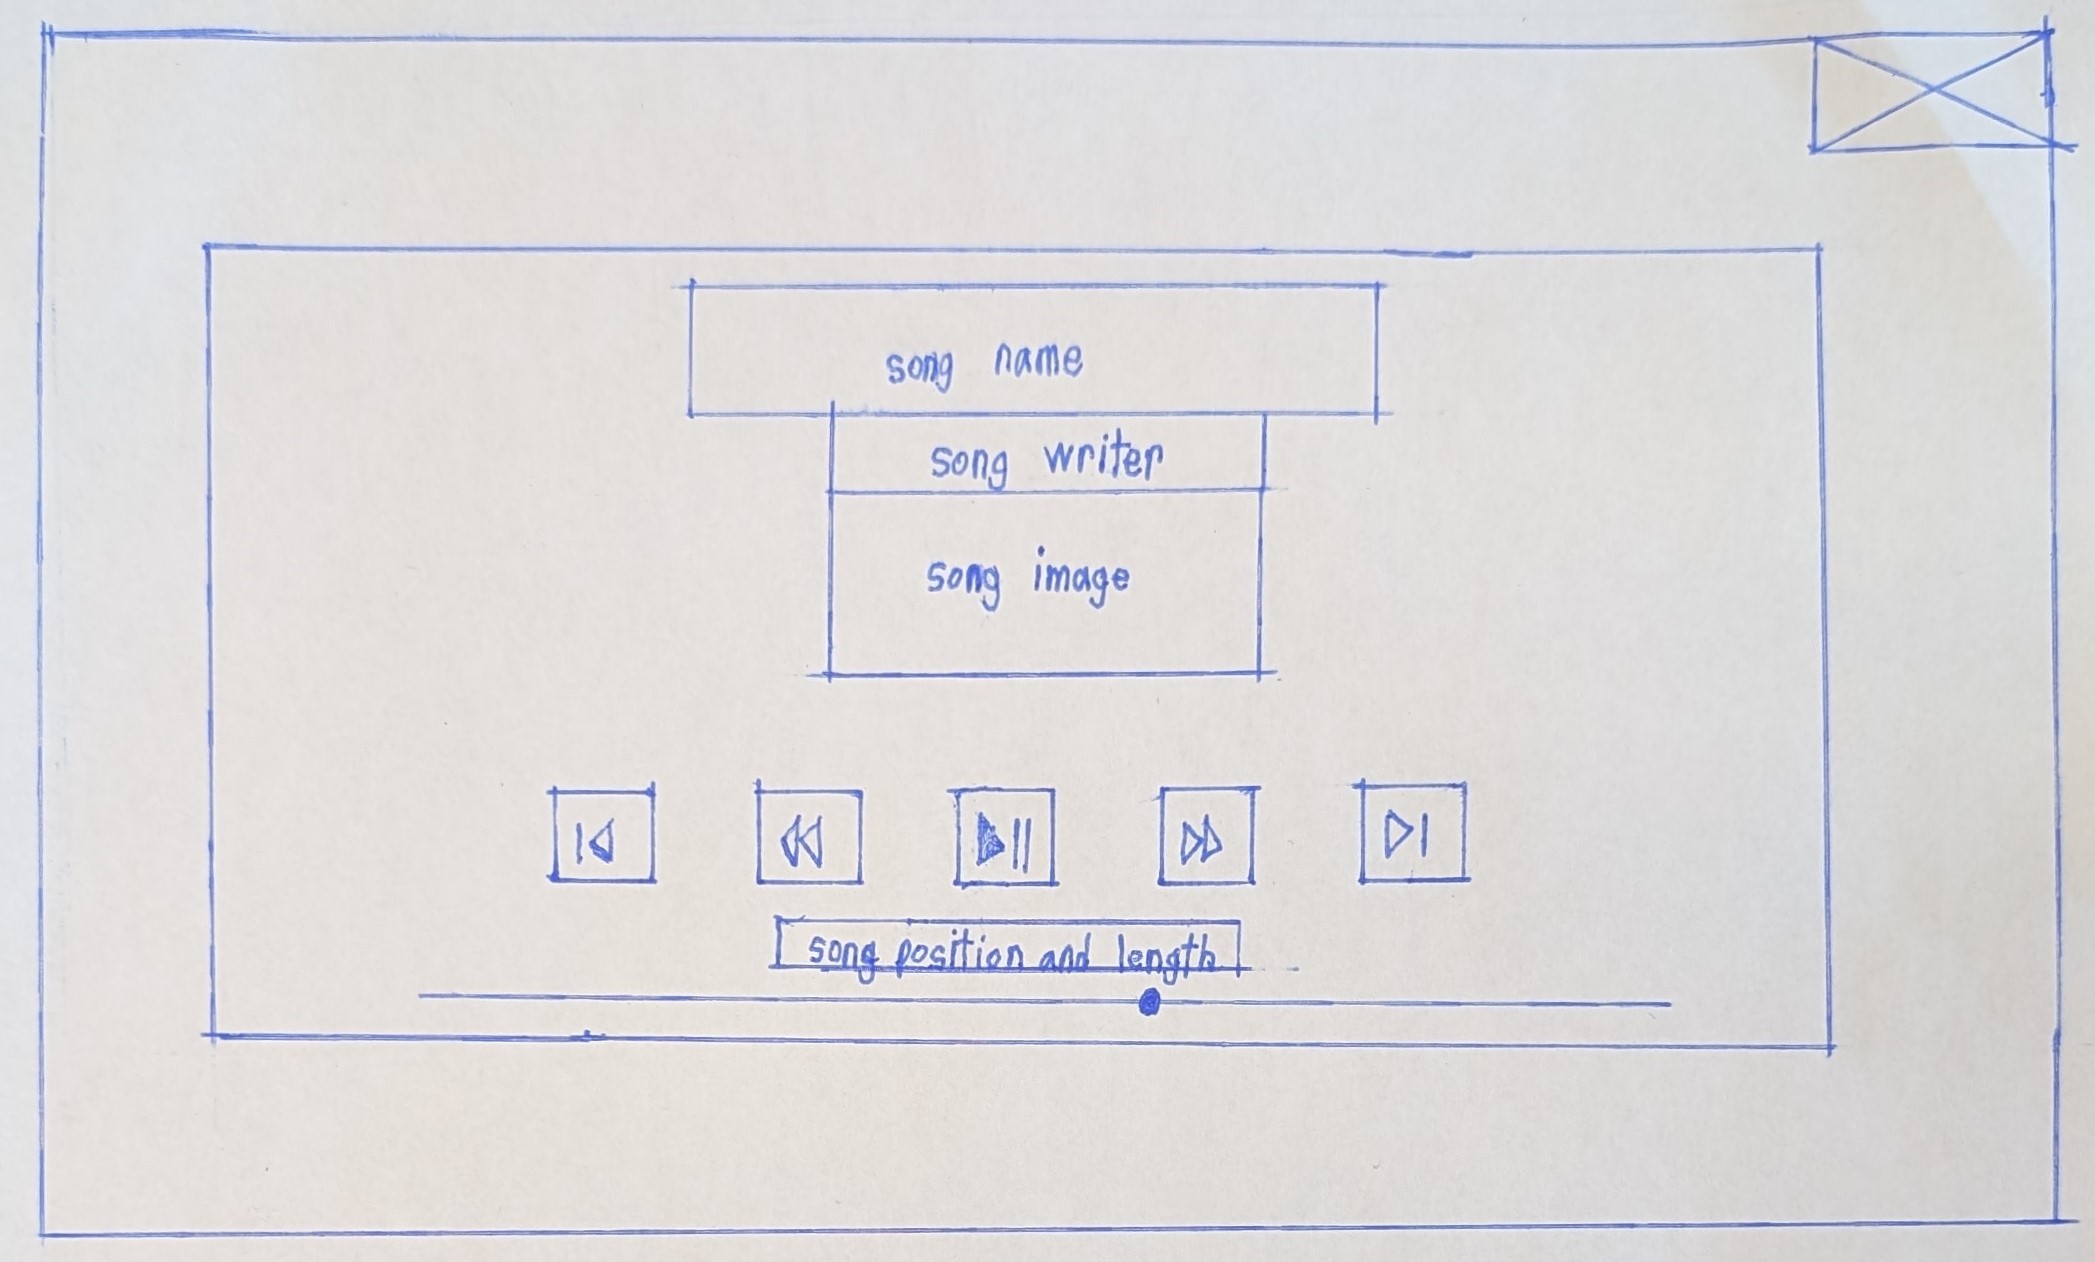 song name
song writer
song image
song position and length